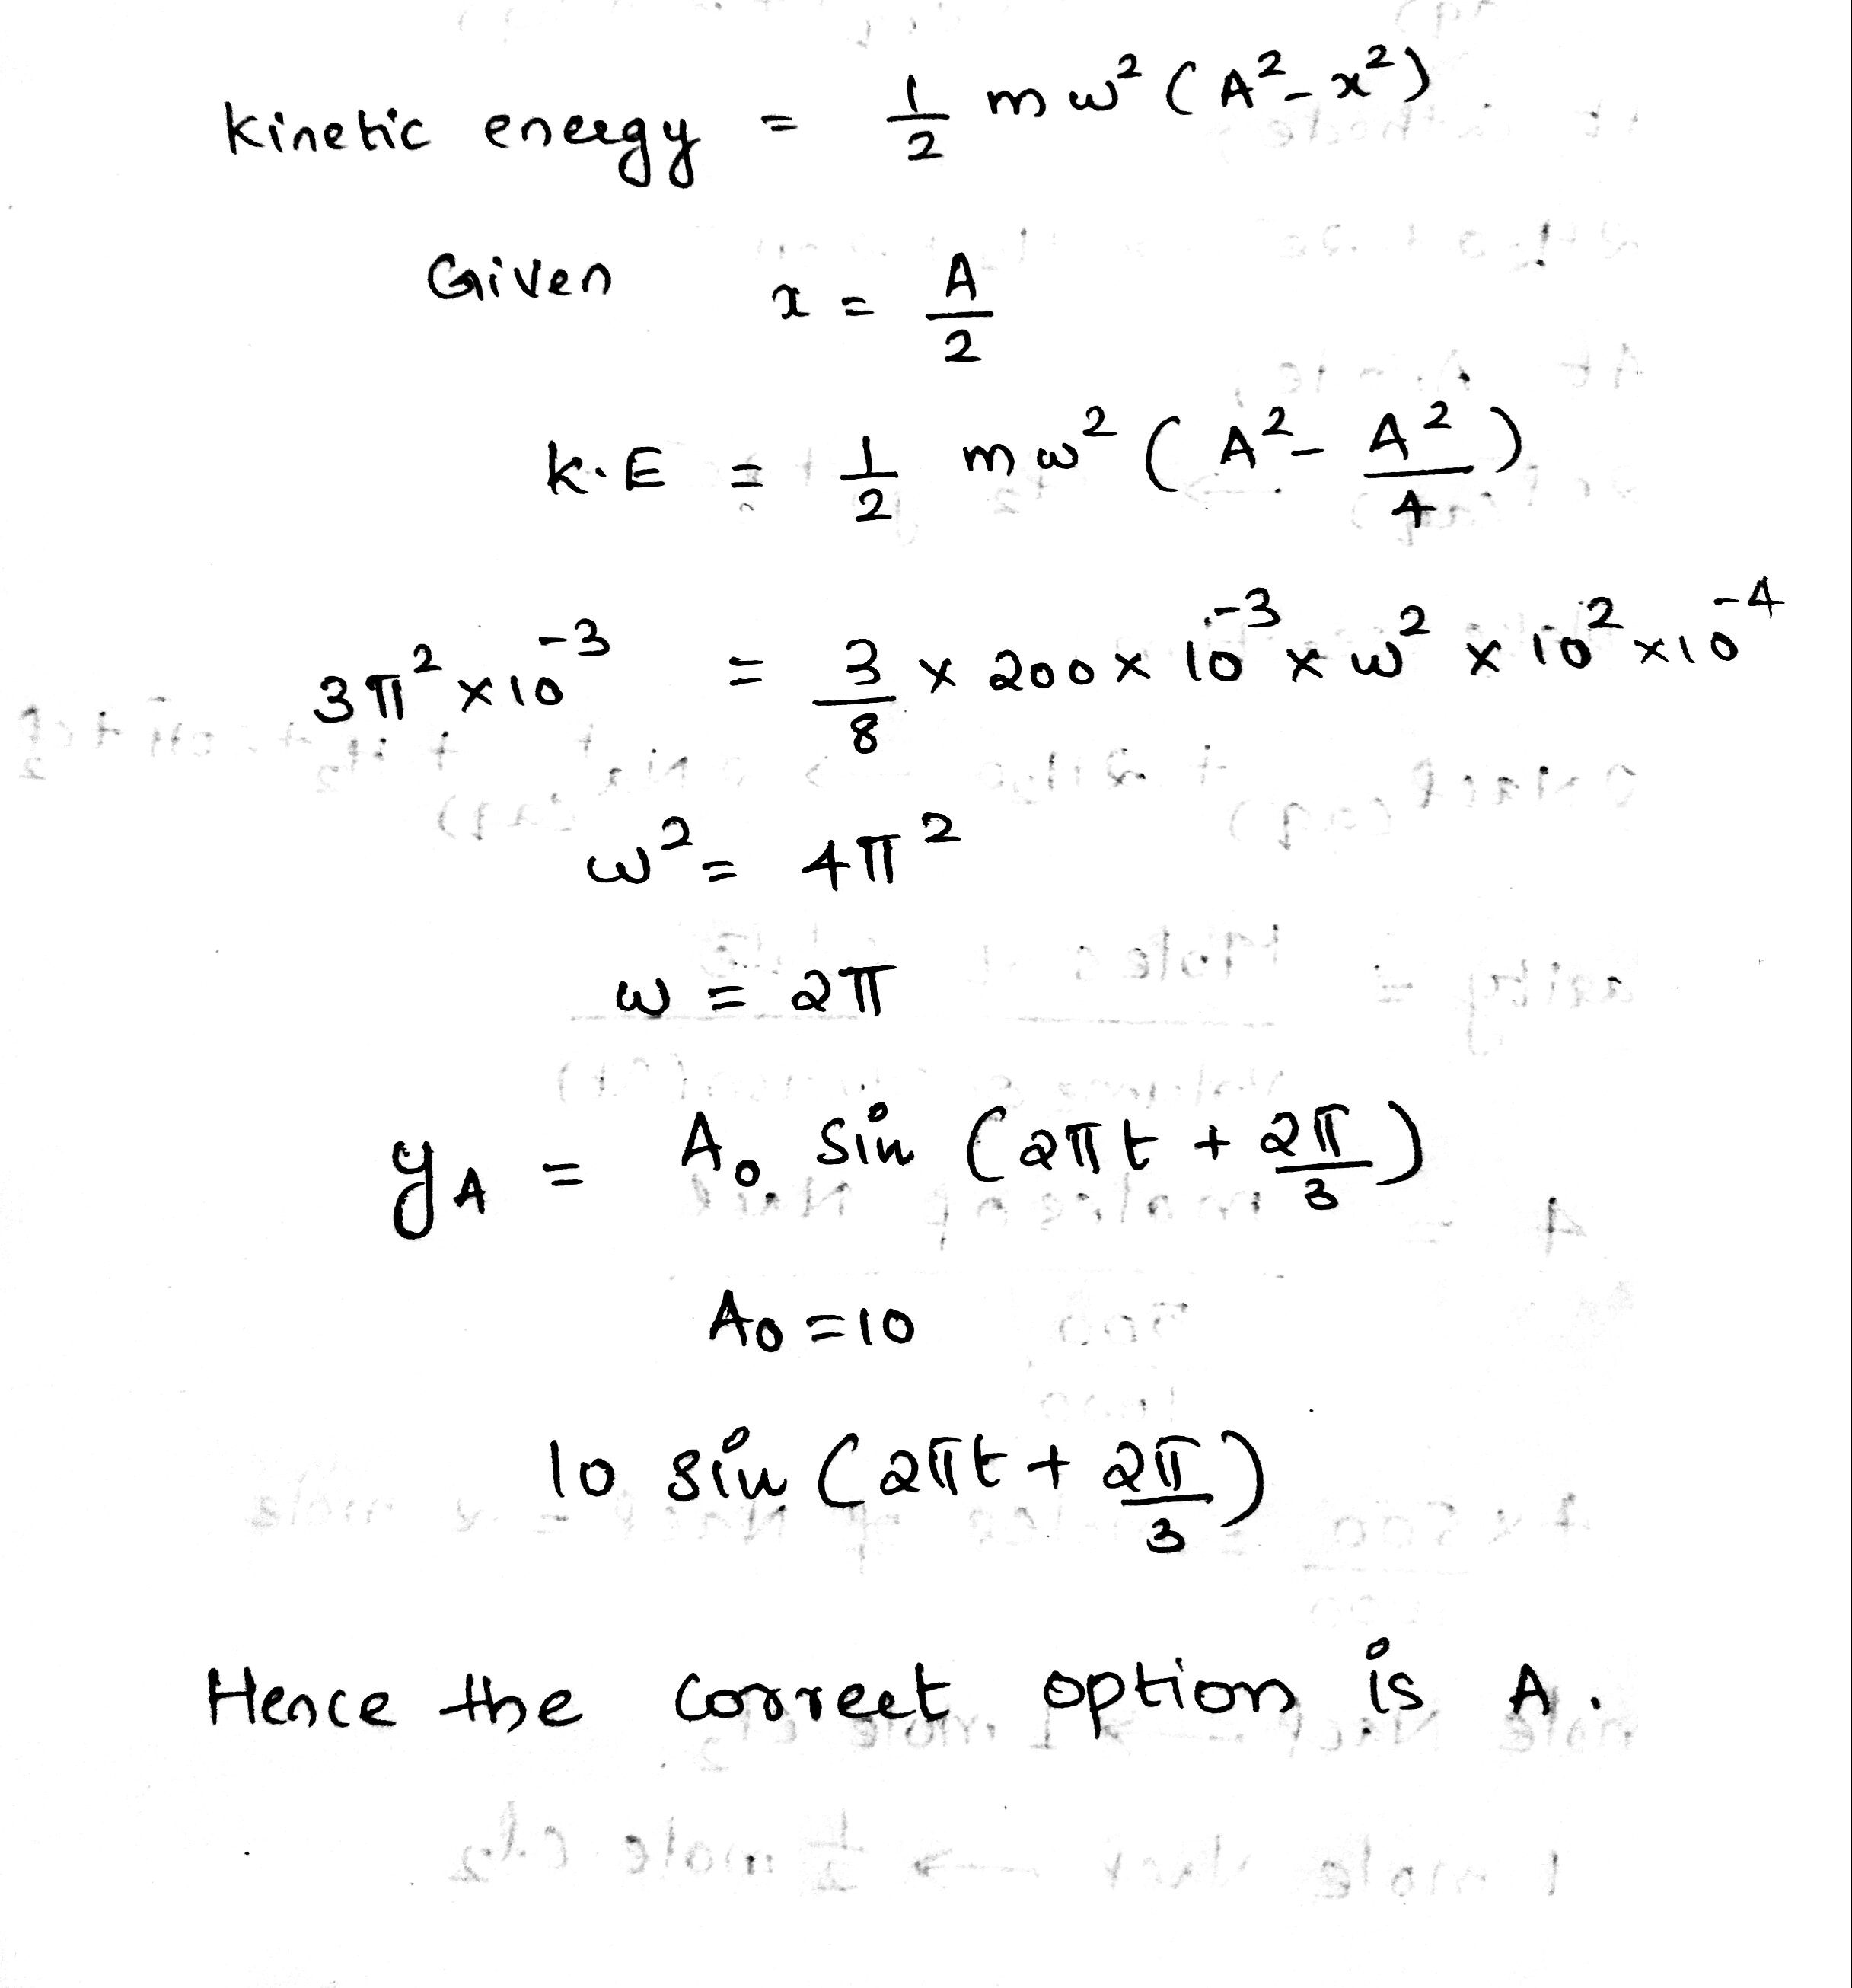 Kinetic energy = 1/2 mω² (A² - x²)
Given x = A/2
K.E = 1/2 mω² (A² - A²/4)
3π² × 10⁻³ = 3/8 × 200 × 10⁻³ × ω² × 10² × 10⁻⁴
ω² = 4π²
ω = 2π
y_A = A₀ sin (2πt + 2π/3)
A₀ = 10
10 sin (2πt + 2π/3)
Hence the correct option is A.